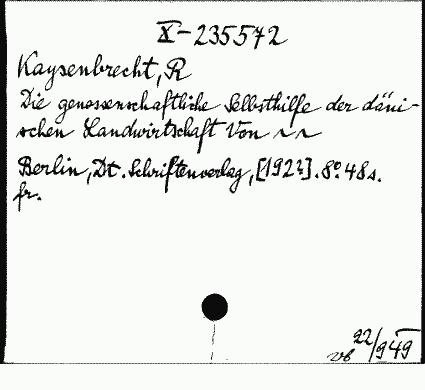 X-235572
Kaysenbrecht, R
Die genossenschaftliche Selbsthilfe der däni-
schen Landwirtschaft Von ~ ~
Berlin, Dt. Schriftenverlag, [1922]. 8º. 48 s.
fr.
22/949